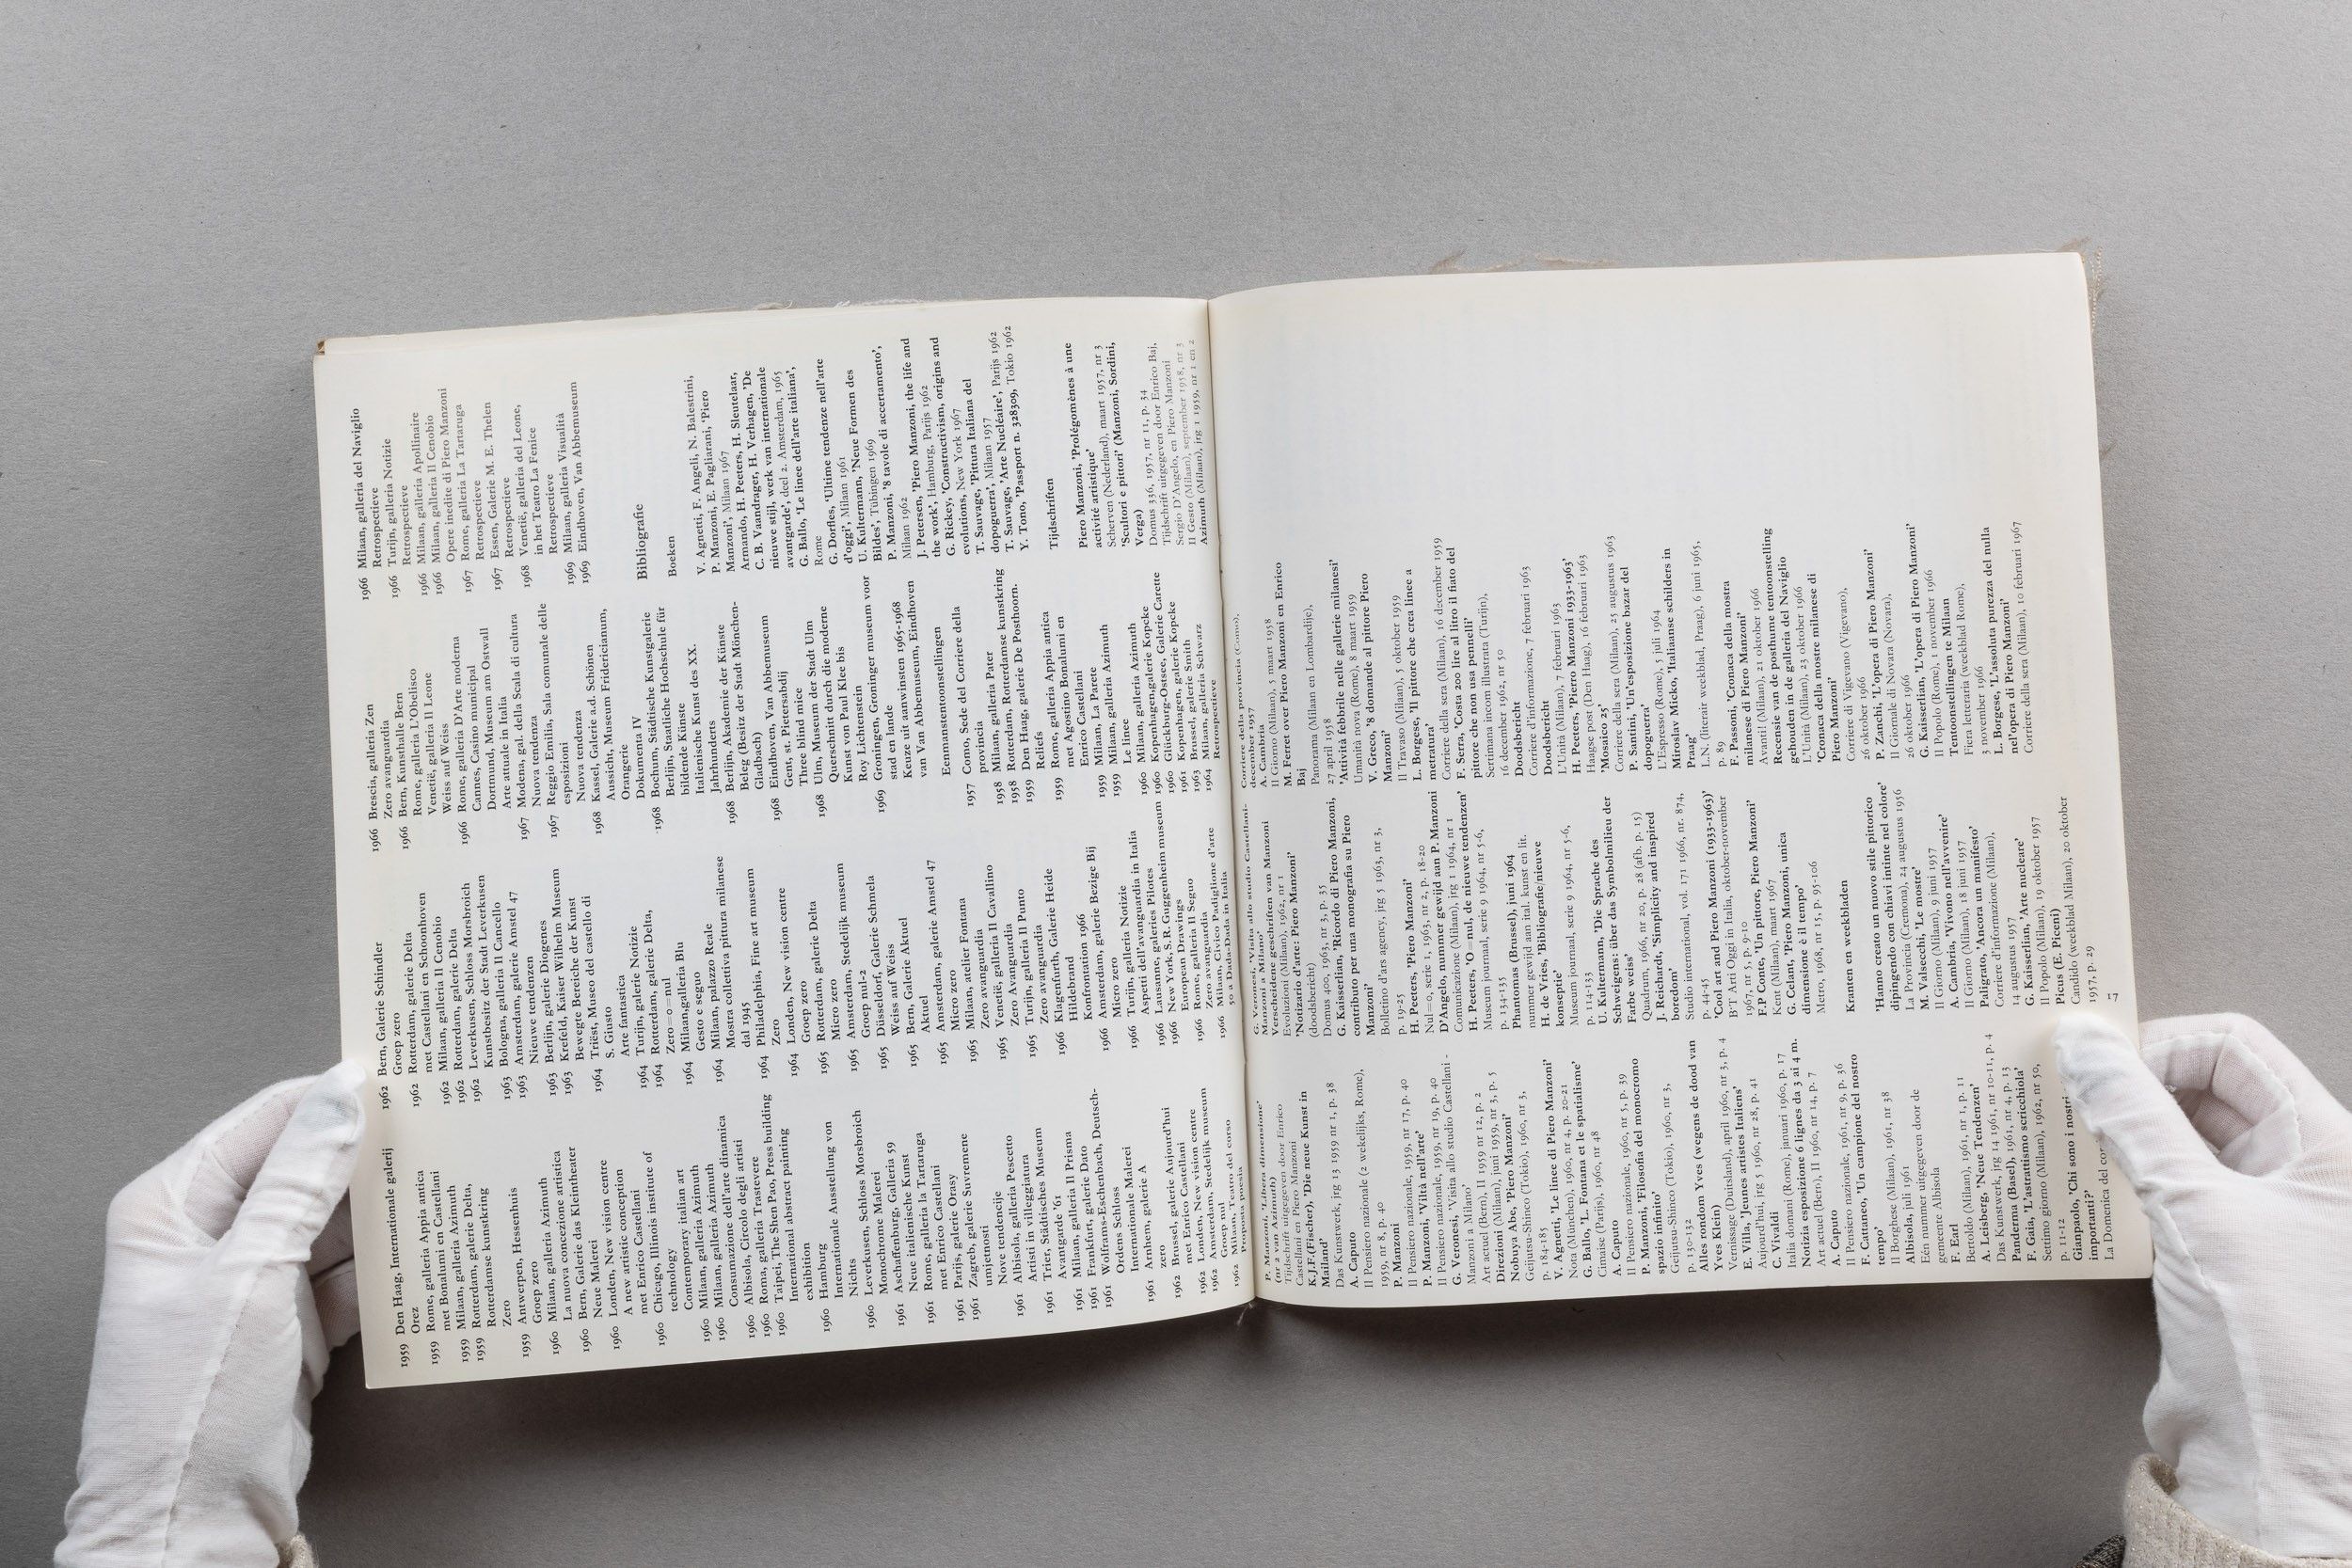 1959 Den Haag, Internationale galerij
Orez
1959 Rome, galleria Appia antica
met Bonalumi en Castellani
1959 Milaan, galleria Azimuth
1959 Rotterdam, galerie Delta,
Rotterdamse kunstkring
Zero
1959 Antwerpen, Hessenhuis
Groep zero
1960 Milaan, galleria Azimuth
La nuova concezione artistica
1960 Bern, Galerie das Kleintheater
Neue Malerei
1960 London, New vision centre
A new artistic conception
met Enrico Castellani
1960 Chicago, Illinois institute of
technology
Contemporary italian art
1960 Milaan, galleria Azimuth
1960 Milaan, galleria Azimuth
Consumazione dell'arte dinamica
1960 Albisola, Circolo degli artisti
1960 Roma, galleria Trastevere
1960 Taipei, The Shen Pao, Press building
International abstract painting
exhibition
1960 Hamburg
Internationale Ausstellung von
Nichts
1960 Leverkusen, Schloss Morsbroich
Monochrome Malerei
1961 Aschaffenburg, Galleria 59
Neue italienische Kunst
1961 Rome, galleria la Tartaruga
met Enrico Castellani
1961 Parijs, galerie Orasy
1961 Zagreb, galerie Suvremene
umjetnosti
Nove tendencije
1961 Albisola, galleria Pescetto
Artisti in villeggiatura
1961 Trier, Städtisches Museum
Avantgarde '61
1961 Milaan, galleria Il Prisma
1961 Frankfurt, galerie Dato
1961 Wolframs-Eschenbach, Deutsch-
Ordens Schloss
Internationale Malerei
1961 Arnhem, galerie A
zero
1962 Brussel, galerie Aujourd'hui
met Enrico Castellani
1962 London, New vision centre
1962 Amsterdam, Stedelijk museum
Groep nul
1962 Milaan, Teatro del corso
Proposta poesia
1962 Bern, Galerie Schindler
Groep zero
1962 Rotterdam, galerie Delta
met Castellani en Schoonhoven
1962 Milaan, galleria Il Cenobio
1962 Rotterdam, galerie Delta
1962 Leverkusen, Schloss Morsbroich
Kunstbesitz der Stadt Leverkusen
1963 Bologna, galleria Il Cancello
1963 Amsterdam, galerie Amstel 47
Nieuwe tendenzen
1963 Berlijn, galerie Diogenes
1963 Krefeld, Kaiser Wilhelm Museum
Bewegte Bereiche der Kunst
1964 Triëst, Museo del castello di
S. Giusto
Arte fantastica
1964 Turijn, galleria Notizie
1964 Rotterdam, galerie Delta,
Zero=0=nul
1964 Milaan,galleria Blu
Gesto e seguo
1964 Milaan, palazzo Reale
Mostra collettiva pittura milanese
dal 1945
1964 Philadelphia, Fine art museum
Zero
1964 Londen, New vision centre
Groep zero
1965 Rotterdam, galerie Delta
Micro zero
1965 Amsterdam, Stedelijk museum
Groep nul-2
1965 Düsseldorf, Galerie Schmela
Weiss auf Weiss
1965 Bern, Galerie Aktuel
Aktuel
1965 Amsterdam, galerie Amstel 47
Micro zero
1965 Milaan, atelier Fontana
Zero avanguardia
1965 Venetië, galleria Il Cavallino
Zero Avanguardia
1965 Turijn, galleria Il Punto
Zero avanguardia
1966 Klagenfurth, Galerie Heide
Hildebrand
Konfrontation 1966
1966 Amsterdam, galerie Bezige Bij
Micro zero
1966 Turijn, galleria Notizie
Aspetti dell'avanguardia in Italia
1966 Lausanne, galeries Pilotes
1966 New York, S.R. Guggenheim museum
European Drawings
1966 Rome, galleria Il Seguo
Zero avanguardia
1966 Milaan, Civico Padiglione d'arte
50 a Dada-Dada in Italia
1966 Brescia, galleria Zen
Zero avanguardia
1966 Bern, Kunsthalle Bern
Rome, galleria L'Obelisco
Venetië, galleria Il Leone
Weiss auf Weiss
1966 Rome, galleria D'Arte moderna
Cannes, Casino municipal
Dortmund, Museum am Ostwall
Arte attuale in Italia
1967 Modena, gal. della Scala di cultura
Nuova tendenza
1967 Reggio Emilia, Sala comunale delle
esposizioni
Nuova tendenza
1968 Kassel, Galerie a.d. Schönen
Aussicht, Museum Fridericianum,
Orangerie
Dokumenta IV
1968 Bochum, Städtische Kunstgalerie
Berlijn, Staatliche Hochschule für
bildende Künste
Italienische Kunst des XX.
Jahrhunderts
1968 Berlijn, Akademie der Künste
Beleg (Besitz der Stadt Mönchen-
Gladbach)
1968 Eindhoven, Van Abbemuseum
Gent, st. Pietersabdij
Three blind mice
1968 Ulm, Museum der Stadt Ulm
Querschnitt durch die moderne
Kunst von Paul Klee bis
Roy Lichtenstein
1969 Groningen, Groninger museum voor
stad en lande
Keuze uit aanwinsten 1965-1968
van Van Abbemuseum, Eindhoven
Eenmanstentoonstellingen
1957 Como, Sede del Corriere della
provincia
1958 Milaan, galleria Pater
1958 Rotterdam, Rotterdamse kunstkring
1959 Den Haag, galerie De Posthoorn.
Reliefs
1959 Rome, galleria Appia antica
met Agostino Bonalumi en
Enrico Castellani
1959 Milaan, La Parete
1959 Milaan, galleria Azimuth
Le linee
1960 Milaan, galleria Azimuth
1960 Kopenhagen,galerie Kopcke
1960 Glückburg-Ostsee, Galerie Carette
1961 Kopenhagen, galerie Kopcke
1963 Brussel, galerie Smith
1964 Milaan, galleria Schwarz
Retrospectieve
1966 Milaan, galleria del Naviglio
Retrospectieve
1966 Turijn, galleria Notizie
Retrospectieve
1966 Milaan, galleria Apollinaire
1966 Milaan, galleria Il Cenobio
Opere inedite di Piero Manzoni
1967 Rome, galleria La Tartaruga
Retrospectieve
1967 Essen, Galerie M. E. Thelen
Retrospectieve
1968 Venetië, galleria del Leone,
in het Teatro La Fenice
Retrospectieve
1969 Milaan, galleria Visualità
1969 Eindhoven, Van Abbemuseum
Bibliografie
Boeken
V. Agnetti, F. Angeli, N. Balestrini,
P. Manzoni, E. Pagliarani, 'Piero
Manzoni', Milaan 1967
Armando, H. Peeters, H. Sleutelaar,
C. B. Vaandrager, H. Verhagen, 'De
nieuwe stijl, werk van internationale
avantgarde', deel 2. Amsterdam, 1965
G. Ballo, 'Le linee dell'arte italiana',
Rome
G. Dorfles, 'Ultime tendenze nell'arte
d'oggi', Milaan 1961
U. Kultermann, 'Neue Formen des
Bildes', Tübingen 1969
P. Manzoni, '8 tavole di accertamento',
Milaan 1962
J. Petersen, 'Piero Manzoni, the life and
the work', Hamburg, Parijs 1962
G. Rickey, 'Constructivism, origins and
evolutions, New York 1967
T. Sauvage, 'Pittura Italiana del
dopoguerra', Milaan 1957
T. Sauvage, 'Arte Nucléaire', Parijs 1962
Y. Tono, 'Passport n. 328309, Tokio 1962
Tijdschriften
Piero Manzoni, 'Prolégomènes à une
activité artistique'
Scherven (Nederland), maart 1957, nr 3
'Scultori e pittori' (Manzoni, Sordini,
Verga)
Domus 336, 1957, nr 11, p. 34
Tijdschrift uitgegeven door Enrico Baj,
Sergio D'Angelo, en Piero Manzoni
Il Gesto (Milaan), september 1958, nr 3
Azimuth (Milaan), jrg 1 1959, nr 1 en 2
P. Manzoni, 'Libera dimensione'
(nr 2 van Azimuth)
Tijdschrift uitgegeven door Enrico
Castellani en Piero Manzoni
K.J.F.(Fischer), 'Die neue Kunst in
Mailand'
Das Kunstwerk, jrg 13 1959 nr 1, p. 38
A. Caputo
Il Pensiero nazionale (2 wekelijks, Rome),
1959, nr 8, p. 40
P. Manzoni
Il Pensiero nazionale, 1959, nr 17, p. 40
P. Manzoni, 'Viltà nell'arte'
Il Pensiero nazionale, 1959, nr 19, p. 40
G. Veronesi, 'Visita allo studio Castellani -
Manzoni a Milano'
Art actuel (Bern), II 1959 nr 12, p. 2
Direzioni (Milaan), juni 1959, nr 3, p. 5
Nobuya Abe, 'Piero Manzoni'
Geijutsu-Shinco (Tokio), 1960, nr 3,
p. 184-185
V. Agnetti, 'Le linee di Piero Manzoni'
Nota (München), 1960, nr 4, p. 20-21
G. Ballo, 'L. Fontana et le spatialisme'
Cimaise (Parijs), 1960, nr 48
A. Caputo
Il Pensiero nazionale, 1960, nr 5, p. 39
P. Manzoni, 'Filosofia del monocromo
spazio infinito'
Geijutsu-Shinco (Tokio), 1960, nr 3,
p. 130-132
Alles rondom Yves (wegens de dood van
Yves Klein)
Vernissage (Duitsland), april 1960, nr 3, p. 4
E. Villa, 'Jeunes artistes Italiens'
Aujourd'hui, jrg 5 1960, nr 28, p. 41
C. Vivaldi
Italia domani (Rome), januari 1960, p. 17
Notizia esposizione 6 lignes da 3 ai 4 m.
Art actuel (Bern), II 1960, nr 14, p. 7
A. Caputo
Il Pensiero nazionale, 1961, nr 9, p. 36
F. Cattaneo, 'Un campione del nostro
tempo'
Il Borghese (Milan), 1961, nr 38
Albisola, juli 1961
Eén nummer uitgegeven door de
gemeente Albisola
F. Earl
Bertoldo (Milaan), 1961, nr 1, p. 11
A. Leisberg, 'Neue Tendenzen'
Das Kunstwerk, jrg 14 1961, nr 10-11, p. 4
Panderma (Basel), 1961, nr 4, p. 13
F. Gaia, 'L'astrattismo scricchiola'
Settimo giorno (Milaan), 1962, nr 50,
p. 11-12
Gianpaolo, 'Chi sono i nostri
importanti?'
La Domenica del
G. Veronesi, 'Visita allo studio Castellani-
Manzoni a Milano'
Verscheidene geschriften van Manzoni
Evoluzioni (Milaan), 1962, nr 1
'Notizario d'arte: Piero Manzoni'
(doodsbericht)
Domus 400, 1963, nr 3, p. 35
G. Kaisserlian, 'Ricordo di Piero Manzoni,
contributo per una monografia su Piero
Manzoni'
Bolletino d'ars agency, jrg 5 1963, nr 3,
p. 19-25
H. Peeters, 'Piero Manzoni'
Nul=0, serie 1, 1963, nr 2, p. 18-20
D'Angelo, nummer gewijd aan P. Manzoni
Comunicazione (Milaan), jrg 1 1964, nr 1
H. Peeters, 'O=nul, de nieuwe tendenzen'
Museum journaal, serie 9 1964, nr 5-6,
p. 134-135
Phantomas (Brussel), juni 1964
nummer gewijd aan ital. kunst en lit.
H. de Vries, 'Bibliografie/nieuwe
konseptie'
Museum journaal, serie 9 1964, nr 5-6,
p. 114-133
U. Kultermann, 'Die Sprache des
Schweigens: über das Symbolmilieu der
Farbe weiss'
Quadrum, 1966, nr 20, p. 28 (afb. p. 15)
J. Reichardt, 'Simplicity and inspired
boredom'
Studio international, vol. 171 1966, nr. 874,
p. 44-45
'Cool art and Piero Manzoni (1933-1963)'
B'T Arti Oggi in Italia, october-november
1967, nr 5, p. 9-10
F.P Conte, 'Un pittore, Piero Manzoni'
Kent (Milaan), maart 1967
G. Celant, 'Piero Manzoni, unica
dimensione è il tempo'
Metro, 1968, nr 15, p. 95-106
Kranten en weekbladen
'Hanno creato nuovo stile pittorico
dipingendo con chiavi intinte nel colore'
La Provincia (Cremona), 24 augustus 1956
M. Valsecchi, 'Le mostre'
Il Giorno (Milaan), 9 juni 1957
A. Cambria, 'Vivono nell'avvenire'
Il Giorno (Milaan), 18 juni 1957
Paligrato, 'Ancora un manifesto'
Corriere d'informazione (Milaan),
14 augustus 1957
G. Kaisserlian, 'Arte nucleare'
Il Popolo (Milaan), 19 oktober 1957
Picus (E. Piceni)
Candido (weekblad Milaan), 20 oktober
1957, p. 29
Corriere della provincia (Como),
december 1957
A. Cambria
Il Giorno (Milaan), 5 maart 1958
M. Ferret over Piero Manzoni en Enrico
Baj
Panorama (Milaan en Lombardije),
27 april 1958
'Attività febbrile nelle gallerie milanesi'
Umanità nova (Rome), 8 maart 1959
V. Greco, '8 domande al pittore Piero
Manzoni'
Il Travaso (Milaan), 5 oktober 1959
L. Borgese, 'Il pittore che crea linee a
metratura'
Corriere della sera (Milaan), 16 december 1959
F. Serra, 'Costa 200 lire al litro il fiato del
pittore che non usa pennelli'
Settimana incom illustrata (Turijn),
16 december 1962, nr 50
Doodsbericht
Corriere d'Informazione, 7 februari 1963
Doodsbericht
L'Unità (Milaan), 7 februari 1963
H. Peeters, 'Pierro Manzoni 1933-1963'
Haagse post (Den Haag), 16 februari 1963
'Mosaico 25'
Corriere della sera (Milaan), 25 augustus 1963
P. Santini, 'Un'esposizione bazar del
dopoguerra'
L'Espresso (Rome), 5 juli 1964
Miroslav Micko, 'Italiaanse schilders in
Praag'
L.N. (literair weekblad, Praag), 6 juni 1965,
p. 89
F. Passoni, 'Cronaca della mostra
milanese di Piero Manzoni'
Avanti! (Milaan), 21 oktober 1966
Recensie van de posthume tentoonstelling
gehouden in de galleria del Naviglio
L'Unità (Milaan), 23 oktober 1966
'Cronaca della mostre milanese di
Piero Manzoni'
Corriere di Vigevano (Vigevano),
26 oktober 1966
P. Zanchi, 'L'opera di Piero Manzoni'
Il Giornale di Novara (Novara),
26 oktober 1966
G. Kaisserlian, 'L'opera di Piero Manzoni'
Il Popolo (Rome), 1 november 1966
Tentoonstellingen te Milaan
Fiera letteraria (weekblad Rome),
3 november 1966
L. Borgese, 'L'assoluta purezza del nulla
nel'opera di Piero Manzoni'
Corriere della sera (Milaan), 10 februari 1967
17